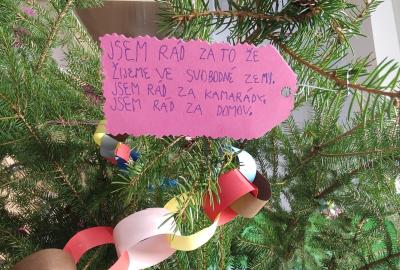 JSEM RÁD ZA TO ŽE
ŽIJEME VE SVOBODNÉ ZEMI.
JSEM RÁD ZA KAMARÁDY.
JSEM RÁD ZA DOMOV.